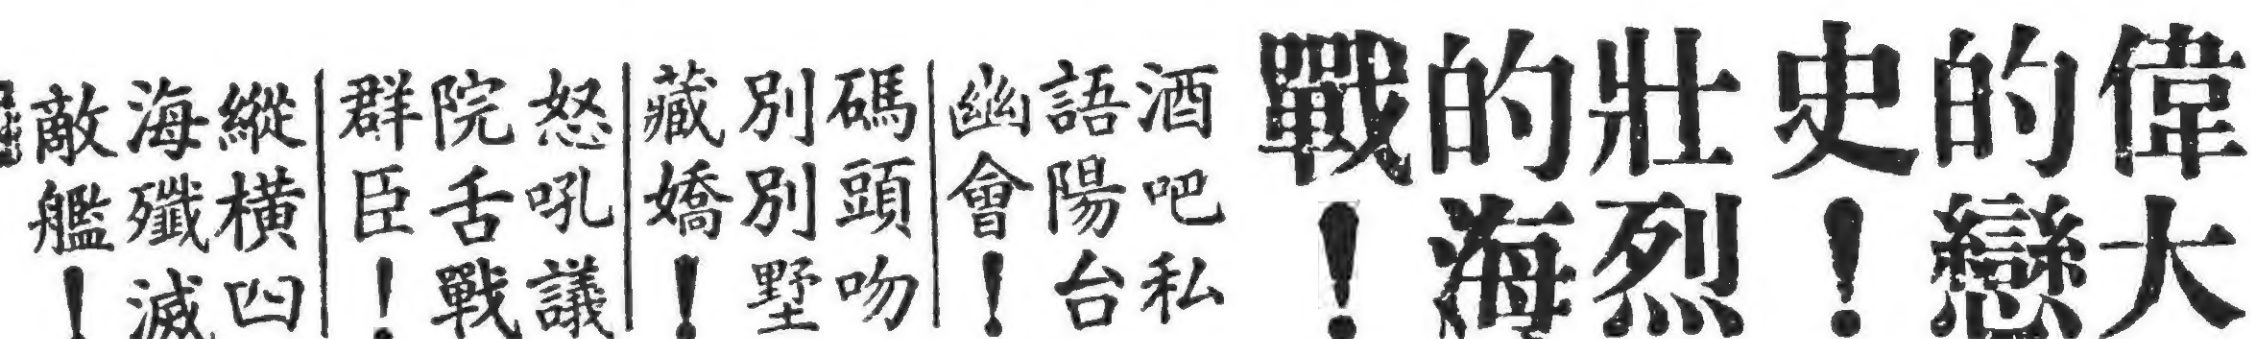 偉大
的戀
史！
壯烈
的海
戰！
酒吧私
語陽台
幽會！
碼頭吻
別別墅
藏嬌！
怒吼議
院舌戰
群臣！
縱橫四
海殲滅
敵艦！